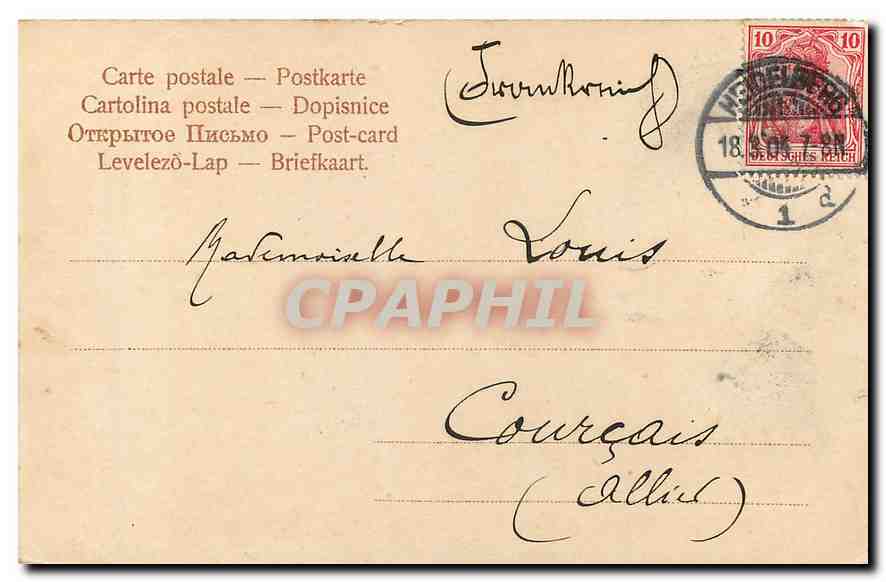 Carte postale — Postkarte
Cartolina postale — Dopisnice
Открытое Письмо — Post-card
Levelezò-Lap — Briefkaart.
(Frankreich)
10 10
DEUTSCHES REICH
HEIDELBERG
7-8N
1 d
Mademoiselle Louis
CPAPHIL
Courçais
(Allier)